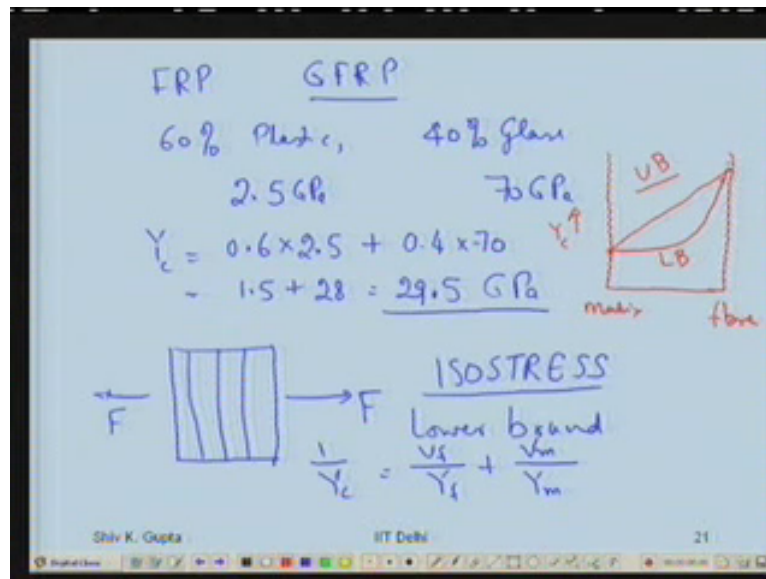 FRP GFRP
60% Plastic, 40% Glass
2.5 GPa 70 GPa
Yc = 0.6 x 2.5 + 0.4 x 70
= 1.5 + 28 = 29.5 GPa
UB
Yc ↑
LB
matrix fibre
F F
ISOSTRESS
Lower bound
1/Yc = Vf/Yf + Vm/Ym
Shiv K. Gupta IIT Delhi 21